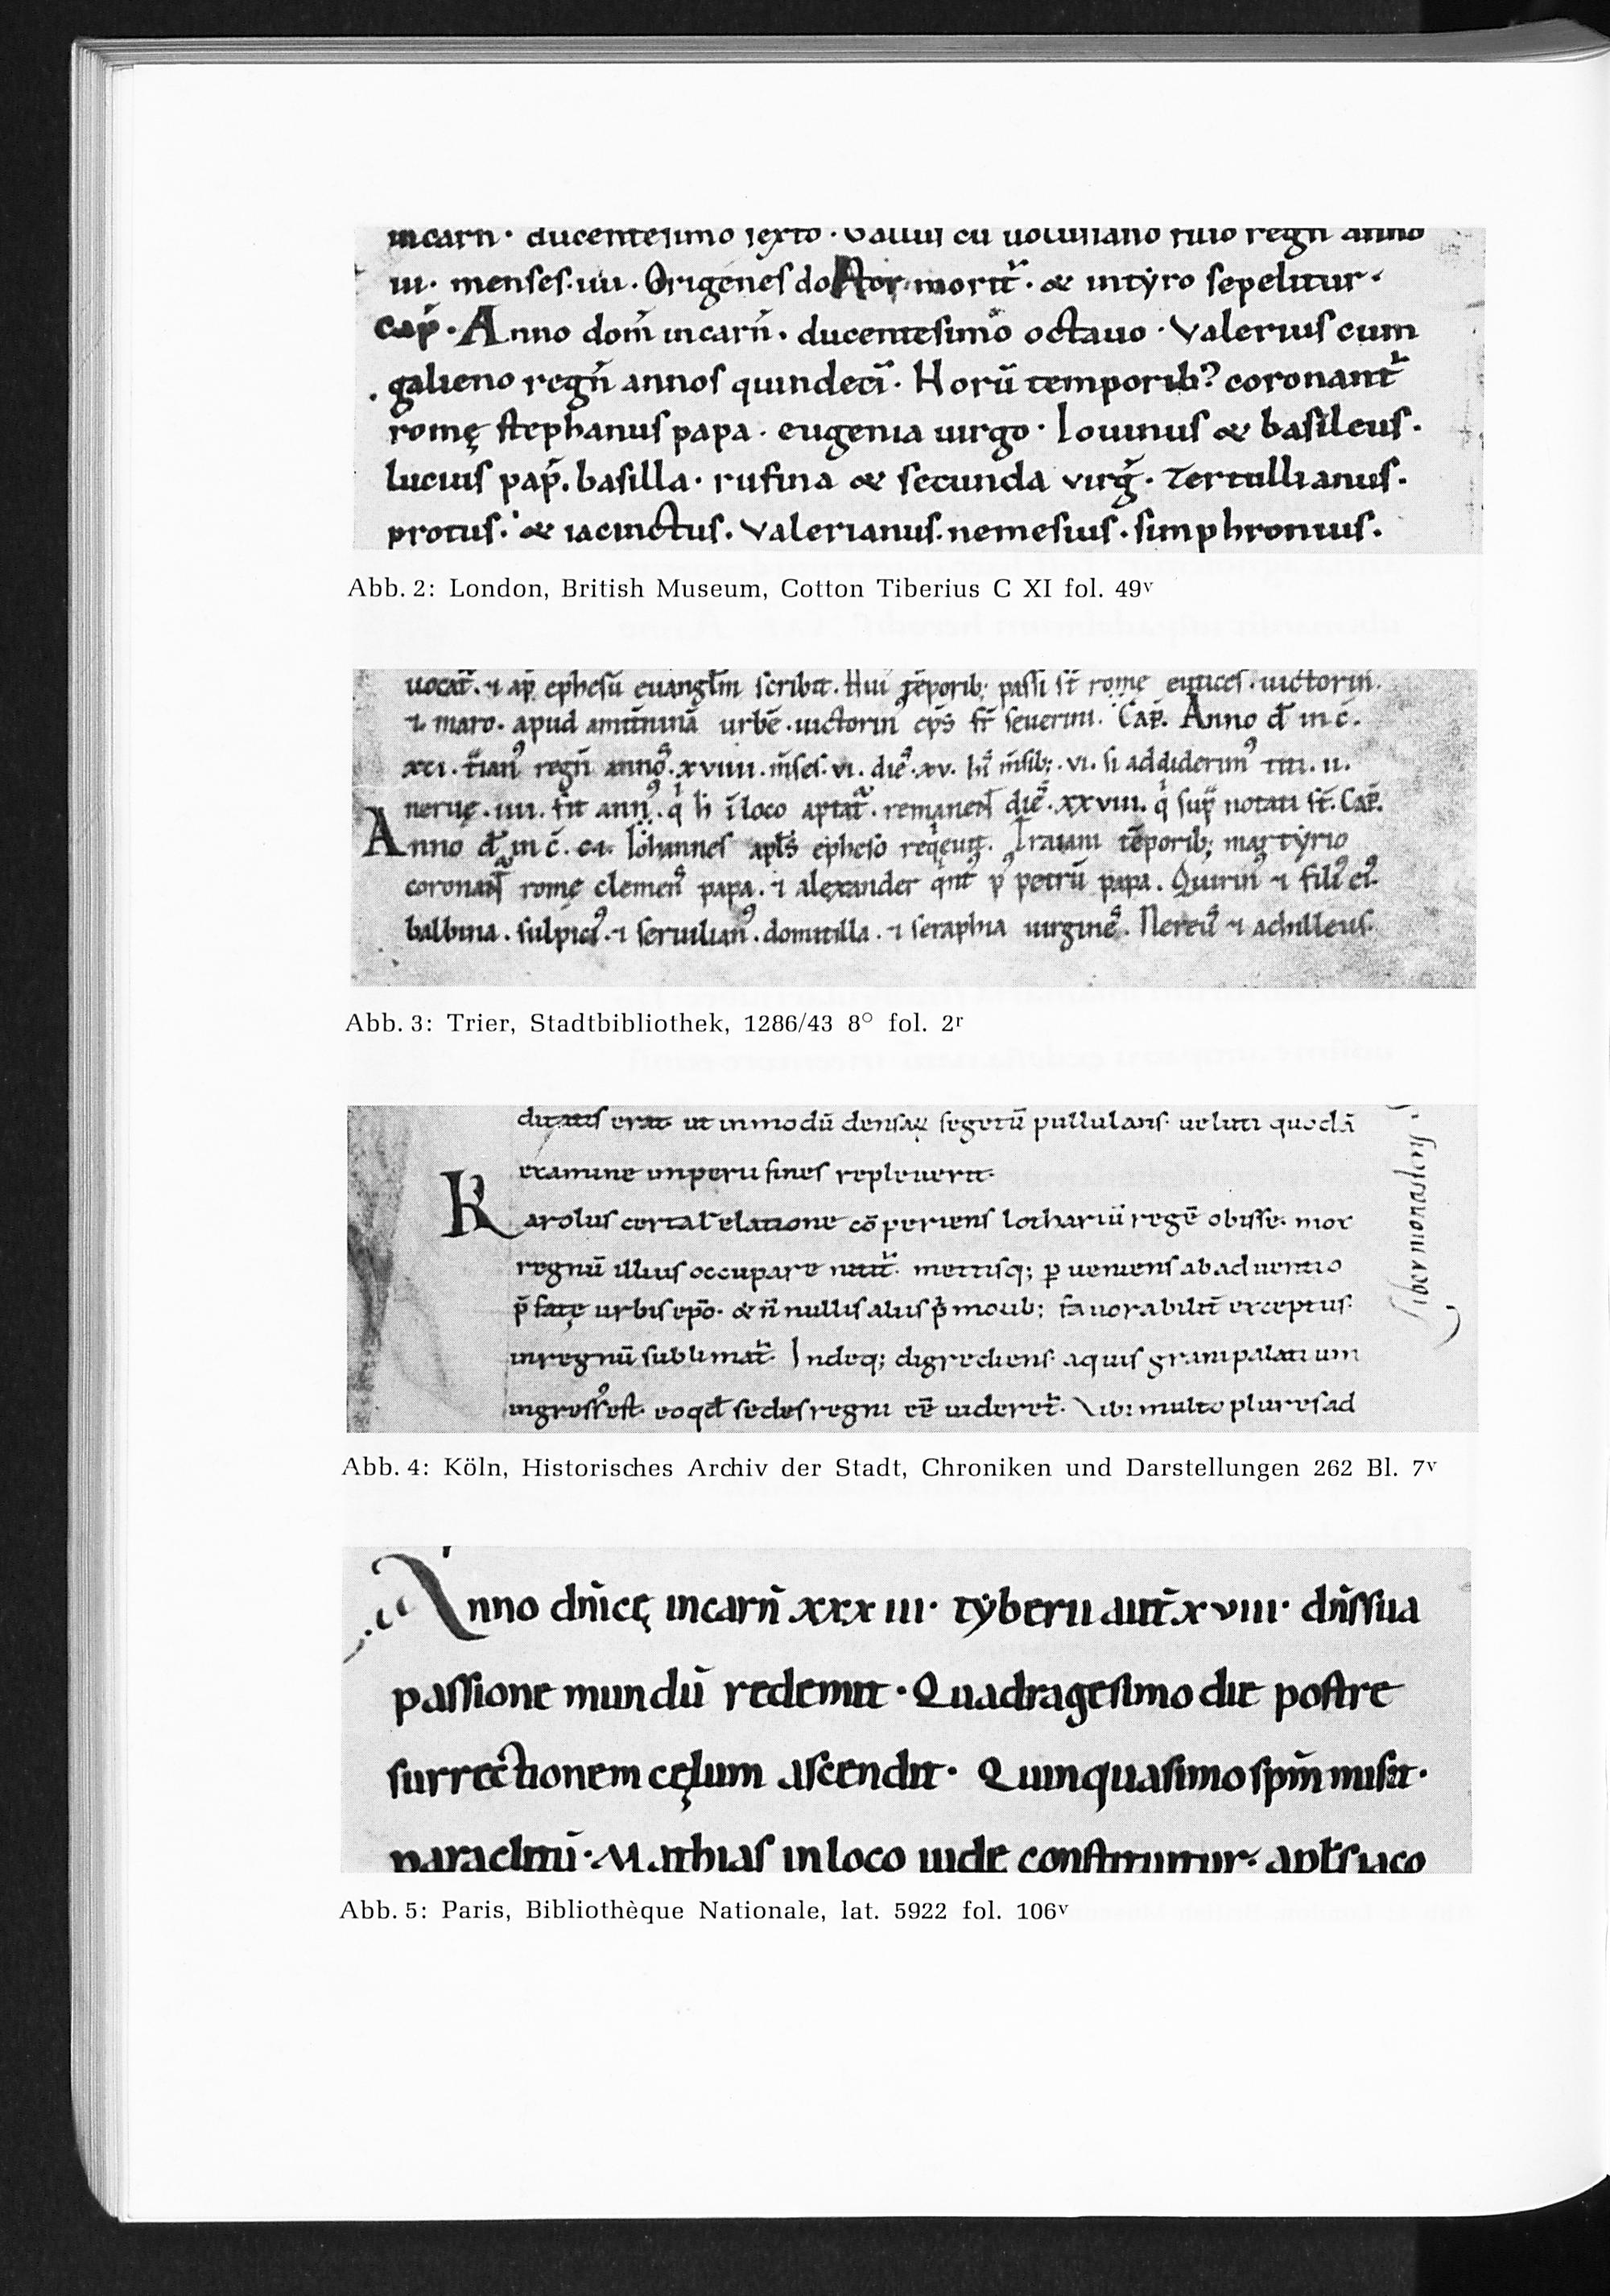 incarn̄· ducentesimo sexto· Gallus cū uolusiano filio regn̄ anno
iii· menses·iiii· Origenes doctor morit̄· & intyro sepelitur·
Cap̄· Anno dom̄ incarn̄· ducentesimo octauo· Valerius cum
galieno regn̄ annos quindecī· Horū temporib; coronant̄
romę stephanus papa· eugenia uirgo· Iouinus & basileus·
lucius pap̄. basilla· rufina & secunda virḡ· Tertullianus·
protus· & iacinctus. Valerianus. nemesius. simphronius.
Abb. 2: London, British Museum, Cotton Tiberius C XI fol. 49v
uocat̄. ⁊ ap̄ ephesū euangl̄m scribit. Hui tēporib; passi st̄ romę euuices. uictorin̄.
⁊ maro. apud amitīninā urbē. uictorin᾿ ep̄s fr̄ seuerini. Cap̄. Anno d̄ in c̄.
xci. t̄ian᾿ regn̄ anno᷒. xviiii. m̄ses. vi. die᷒. xv. hi᷒ m̄sib; . vi. si addiderim᾿ titi. ii.
neruę. iiii. fit ann᾿. q̄ h̄ īloco aptat̄. remanent̄ die᷒. xxviii. q̄ sup̄ notati st̄. Cap̄.
Anno d̄ in c̄. ci. Iohannes apl̄s epheso reqeuit. Traiani tēporib; martyrio
coronant̄ romę clemen᷒ papa. ⁊ alexander qint᾿ p᾿ petrū papa. Quirin᾿ ⁊ fili᾿ ei᾿.
balbina. sulpici᾿. ⁊ seruilian᾿. domitilla. ⁊ seraphia uirgine᷒. Nereu᷒ ⁊ achilleus.
Abb. 3: Trier, Stadtbibliothek, 1286/43 8° fol. 2r
erat ut inmodū densaꝝ segetū pullulans· ueluti quodā
examine imperii fines repleuerit·
Karolus certa relatione cōperiens lothariū regē obisse· mox
regnū illius occupare nitit̄· mettisq; ꝑueniens abaduentio
p̄fatę urbis ep̄o· & n̄nullis aliis p̄morib; fauorabilit̄ exceptus·
inregnū sublimat̄· Indeq; digrediens aquis grani palatium
ingress᾿ est· eoqd̄ sedes regni eē uideret̄· Vbi multo plures ad
liber monasterii s
Abb. 4: Köln, Historisches Archiv der Stadt, Chroniken und Darstellungen 262 Bl. 7v
Anno dn̄icę incarn̄ xxxiii· tyberii aut̄ xviii· dn̄s sua
passione mundū redemit· Quadragesimo die post re
surrectionem cęlum ascendit· Quinquasimo spm̄ misit·
paraclitū· Mathias inloco iude constituitur· apl̄s iaco
Abb. 5: Paris, Bibliothèque Nationale, lat. 5922 fol. 106v